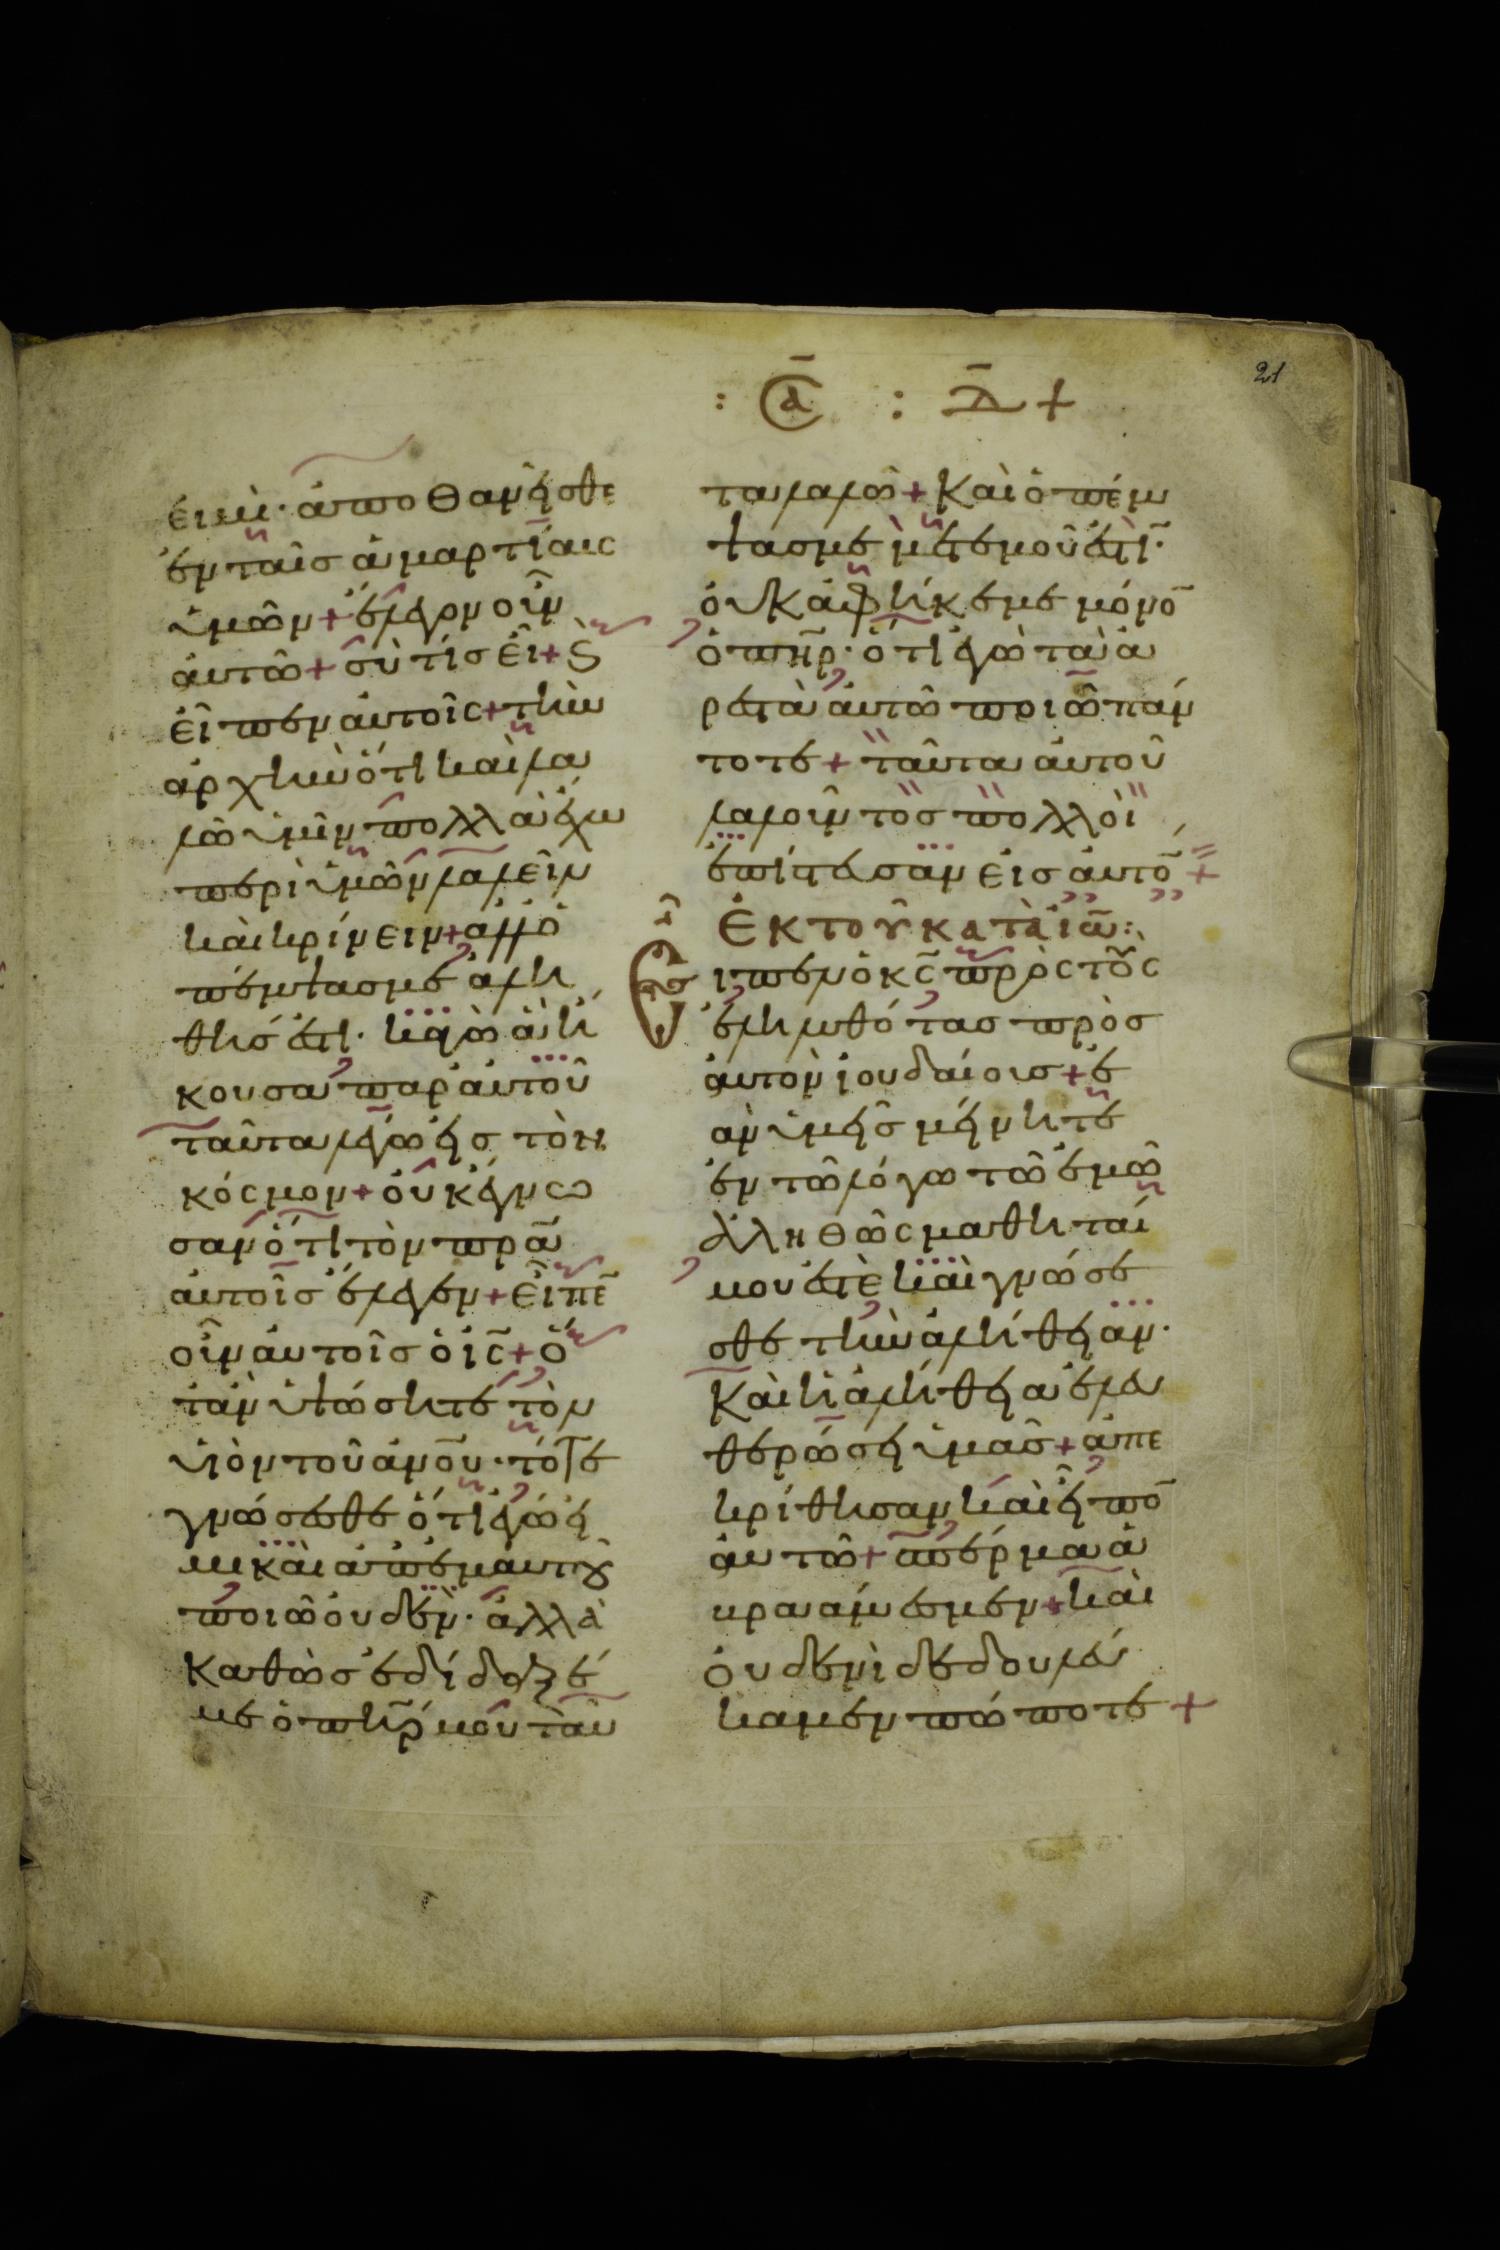 : ϹΑ̅ : Δ̅ +
21
εἰμὶ· ἀποθανήσθε
ἐν ταῖς ἁμαρτίαις
ὑμῶν + ἔλεγον οὖν
αὐτῶ + σὺ τίς εἶ + ϗ
εἶπεν αὐτοῖς + τὴν
ἀρχὴν ὅτι καὶ λα
λῶ ὑμῖν πολλὰ ἔχω
περὶ ὑμῶν λαλεῖν
καὶ κρίνειν + ἀλλ ὁ
πέμψασ με ἀλη
θής ἐστι· καγὼ ἃ ἤ
κουσα παρ αὐτοῦ
ταῦτα λέγω εἰς τὸν
κόσμον + οὐκ ἔγνω
σαν ὅτι τὸν πρ̅α̅
αὐτοῖς ἔλεγεν + εἶπε̅
οὖν αὐτοῖς ὁ ι̅ς̅ + ὅ
ταν ὑψώσητε τὸν
υἱὸν τοῦ ἀν̅ο̅υ̅· τότε
γνώσεσθε ὅτι ἐγώ εἰ
μι καὶ ἀπ ἐμαυτοῦ
ποιῶ οὐδὲν· ἀλλὰ
καθὼς ἐδίδαξέ
με ὁ π̅η̅ρ̅ μου ταῦ
τα λαλῶ + Καὶ ὁ πέμ
ψας με μετ εμοῦ ἐστι̅·
οὐκ ἀφῆκε με μόνο̅
ὁ π̅η̅ρ̅· ὅτι ἐγὼ τὰ ἀ
ρεστὰ αὐτῶ ποιῶ πάν
τοτε + ταῦτα αὐτοῦ
λαλοῦντος πολλοὶ
ἐπίστευσαν εἰς αὐτό̅ +
Ἐκ τοῦ κατὰ ἰω̅:
Εἶπεν ὁ κ̅ς̅ πρὸς τοὺς
ἐληλυθότας πρὸς
αὐτὸν ἰουδαίους + ἐ
ὰν ὑμεῖς μείνητε
ἐν τῶ λόγω τῶ ἐμῶ
ἀληθῶς μαθηταί
μου ἐστὲ καὶ γνώσε
σθε τὴν ἀλήθειαν·
Καὶ ἡ ἀλήθεια ἐλευ
θερώσει ὑμᾶς + ἀπε
κρίθησαν καὶ εἶπο̅
αὐτῶ + σπέρμα ἀ
βραάμ ἐσμεν + καὶ
οὐδενὶ δεδουλεύ
καμεν πώποτε +